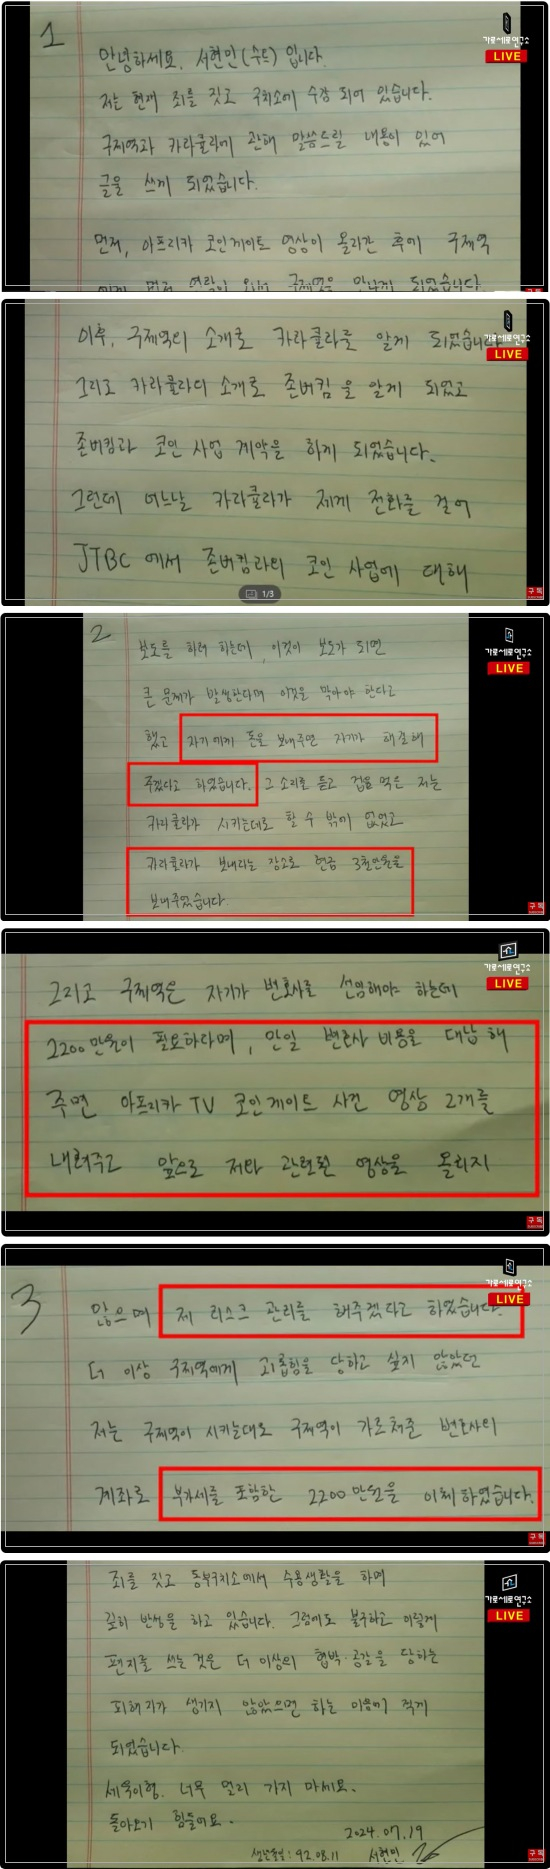 1
가로세로연구소
LIVE
안녕하세요. 서현민(수트) 입니다.
저는 현재 죄를 짓고 구치소에 수감 되어 있습니다.
구제역과 카라큘라에 관해 말씀드릴 내용이 있어
글을 쓰게 되었습니다.
먼저, 아프리카 코인게이트 영상이 올라간 후에 구제역
에게 먼저 연락이 와서 구제역을 만나게 되었습니다.
구독
가로세로연구소
LIVE
이후, 구제역의 소개로 카라큘라를 알게 되었습니다.
그리고 카라큘라의 소개로 존버킴을 알게 되었고
존버킴과 코인 사업 계약을 하게 되었습니다.
그런데 어느날 카라큘라가 제게 전화를 걸어
JTBC 에서 존버킴과의 코인 사업에 대해
1/3
구독
2
가로세로연구소
LIVE
보도를 하려 하는데, 이것이 보도가 되면
큰 문제가 발생한다며 이것을 막아야 한다고
했고 자기에게 돈을 보내주면 자기가 해결해
주겠다고 하였습니다. 그 소리를 듣고 겁을 먹은 저는
카라큘라가 시키는대로 할 수 밖에 없었고
카라큘라가 보내라는 장소로 현금 3천만원을
보내주었습니다.
구독
가로세로연구소
LIVE
그리고 구제역은 자기가 변호사를 선임해야 하는데
2200만원이 필요하다며, 만일 변호사 비용을 대납해
주면 아프리카TV 코인게이트 사건 영상 2개를
내려주고 앞으로 저와 관련된 영상을 올리지
구독
3
가로세로연구소
LIVE
않으며 제 리스크 관리를 해주겠다고 하였습니다.
더 이상 구제역에게 괴롭힘을 당하고 싶지 않았던
저는 구제역이 시키는대로 구제역이 가르쳐준 변호사의
계좌로 부가세를 포함한 2200만원을 이체하였습니다.
구독
가로세로연구소
LIVE
죄를 짓고 동부구치소에서 수용생활을 하며
깊히 반성을 하고 있습니다. 그럼에도 불구하고 이렇게
편지를 쓰는 것은 더 이상의 협박·공갈을 당하는
피해자가 생기지 않았으면 하는 마음에 적게
되었습니다.
세욱이형. 너무 멀리 가지 마세요.
돌아오기 힘들어요.
2024.07.19
생년월일: 92.08.11 서현민
구독